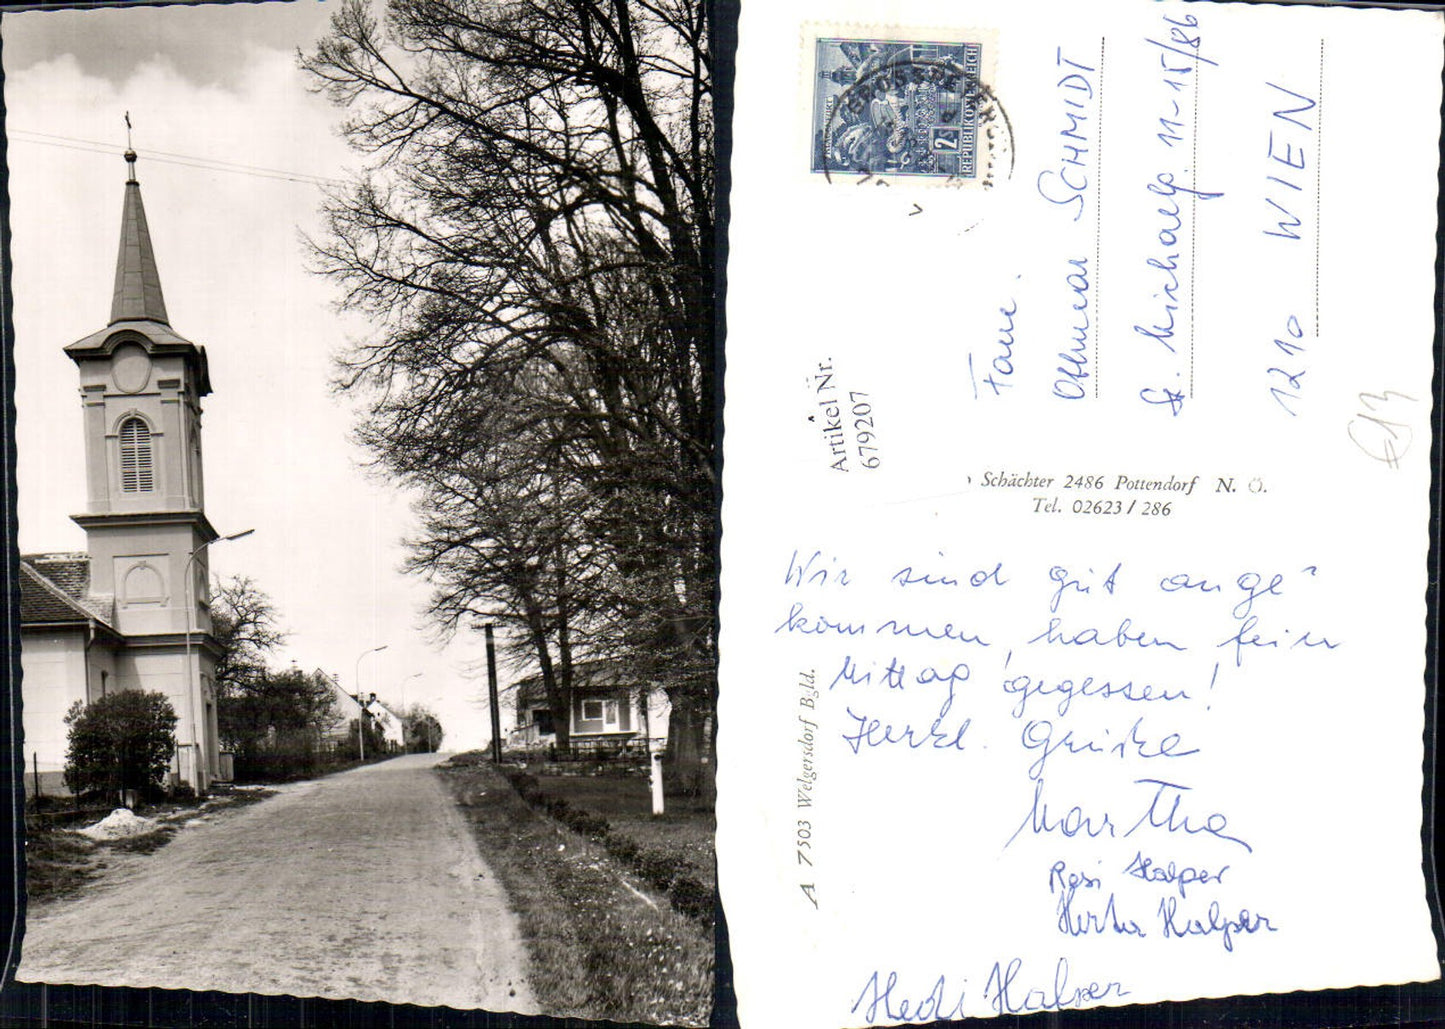 REPUBLIK ÖSTERREICH
2 S
Fam.
Othmar SCHMIDT
1210 WIEN
Artikel Nr.
679207
Schächter 2486 Pottendorf N. Ö.
Tel. 02623 / 286
A 7503 Welgersdorf Bgld.
Wir sind gut ange"
kommen, haben fein
Mittag gegessen!
Herzl. Grüße
Martha
Resi Halper
Herta Halper
Hedi Halper